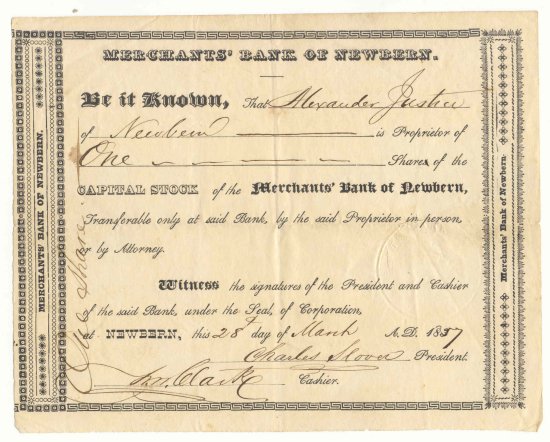 MERCHANTS' BANK OF NEWBERN.
Be it Known, That Alexander Justice
of Newbern is Proprietor of
One Share of the
CAPITAL STOCK of the Merchants' Bank of Newbern,
Transferable only at said Bank, by the said Proprietor in person,
or by Attorney.
Witness the signatures of the President and Cashier
of the said Bank, under the Seal, of Corporation,
at NEWBERN, this 28 day of March A.D. 1857
Charles Slover President.
Clark Cashier.
One Share
MERCHANTS' BANK OF NEWBERN.
Merchants' Bank of Newbern.